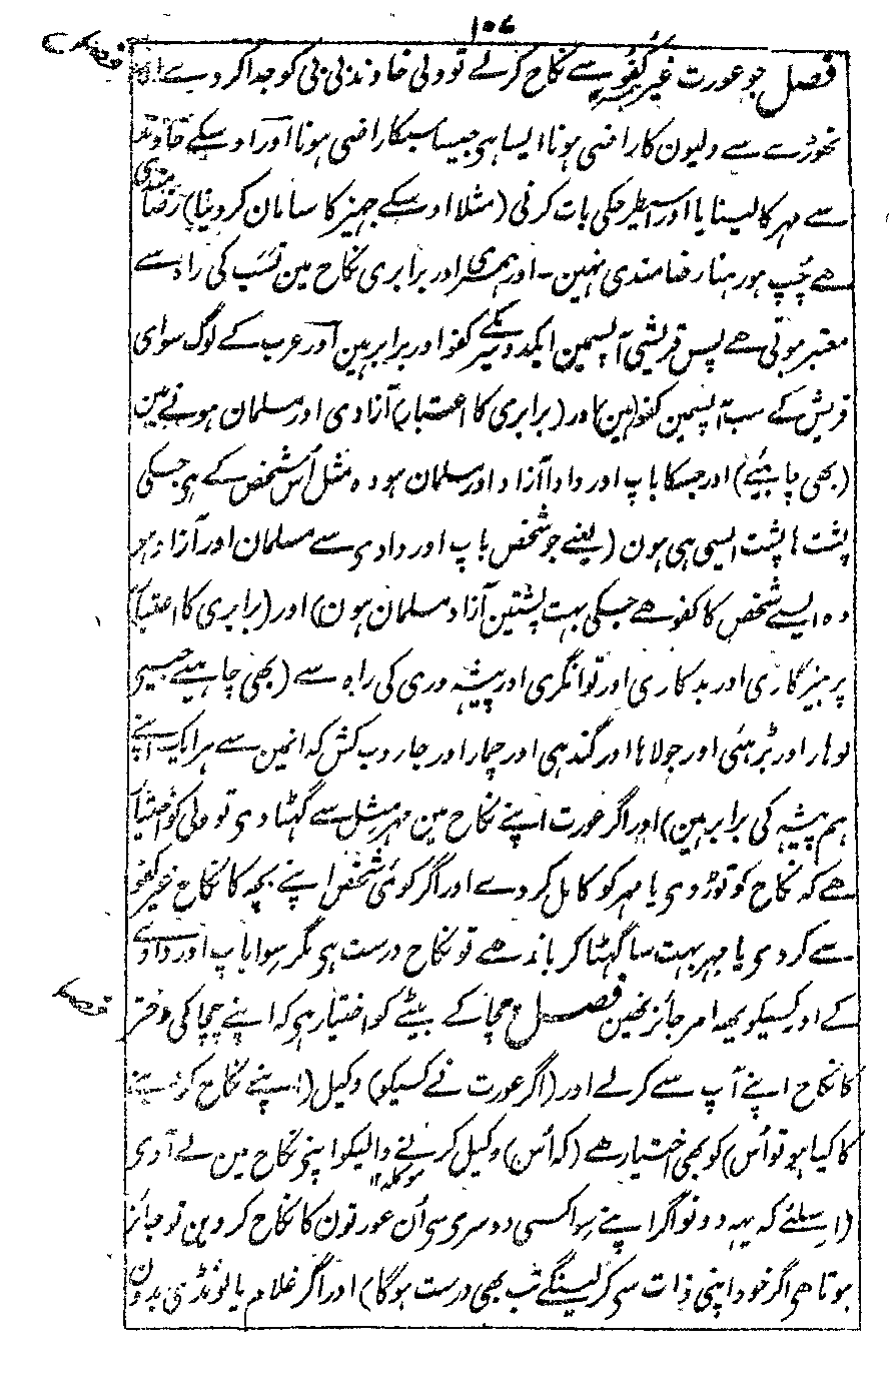 ۱۰۶
فصل جو عورت غیر کفو سے نکاح کرلے تو ولی خاوند بی بی کو جدا کردے اور
تھوڑے سے ولیون کا راضی ہونا ایسا ہی جیسا سبکا راضی ہونا اور اوسکے خاوند
سے مہر کا لینا یا اور اسیطرحکی بات کرنی (مثلا اوسکے جہیز کا سامان کردینا) رضامندی
ھے چپ ہو رہنا رضامندی نہین ۔ اور ہمسری اور برابری نکاح مین نسب کی راہ سے
معتبر ہوتی ھے پس قریشی آپسمین ایکدوسریکے کفو اور برابر ہین اور عرب کے لوگ سوای
قریش کے سب آپسمین کفو (ہین) اور (برابری کا اعتبار) آزادی اور مسلمان ہونے مین
(بھی چاہیئے) اور جسکا باپ اور دادا آزاد اور مسلمان ہو وہ مثل اُس شخص کے ہی جسکی
پشت ہا پشت ایسی ہی ہون (یعنے جو شخص باپ اور دادی سے مسلمان اور آزاد ہو
وہ ایسے شخص کا کفو ھے جسکی بہت پشتین آزاد مسلمان ہون) اور (برابری کا اعتبار)
پرہیزگاری اور بدکاری اور توانگری اور پیشہ وری کی راہ سے (بھی چاہیئے جیسی
لوہار اور بڑہئی اور جولاہا اور گندہی اور چمار اور جاروب کش کہ انمین سے ہر ایک اپنے
ہم پیشہ کی برابر ہین) اور اگر عورت اپنے نکاح مین مہر مثل سے گہٹا دی تو ولی کو اختیار
ھے کہ نکاح کو توڑ دی یا مہر کو کامل کردے اور اگر کوئی شخص اپنے بچہ کا نکاح غیر کفو
سے کردی یا مہر بہت سا گہٹا کر باندھے تو نکاح درست ہی مگر سوا باپ اور دادے
کے اور کسیکو یہہ امر جائز نہین فصل چچا کے بیٹے کو اختیار ہی کہ اپنے چچا کی دختر
کا نکاح اپنے آپ سے کرلے اور (اگر عورت نے کسیکو) وکیل (اپنے نکاح کردینے
کا کیا ہو تو اُس) کو بھی اختیار ھے (کہ اُس) وکیل کرنے والیکو اپنی نکاح مین لے آوی
موکلہ ۱۲
(اسلئے کہ یہہ دونو اگر اپنے سوا کسی دوسری سی اُن عورتون کا نکاح کردین تو جائز
ہوتا ھی اگر خود اپنی ذات سی کرلینگے تب بھی درست ہوگا) اور اگر غلام یا لونڈی بدون